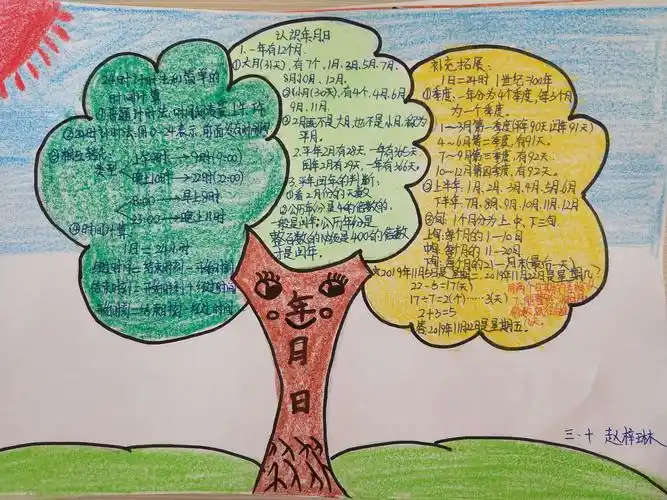 24时计时法和简单的
时间计算
①普通计时法,
②24时计时法:用0~24表示,
③相互转化:
上午9时→9时(9:00)
晚上10时→22时(22:00)
8:00→早上8时
23:00→晚上11时
④时间计算
1日=24小时
经过时间=结束时刻-开始时刻
结束时刻=开始时刻+经过时间
开始时刻=结束时刻-经过时间
认识年月日
1.一年有12个月.
①大月(31天),有7个,1月、3月、5月、7月、
8月、10月、12月.
②小月(30天),有4个,4月、6月、
9月、11月.
③2月既不是大月,也不是小月,称为
平月.
2.平年2月有28天,一年有365天.
闰年2月有29天,一年有366天.
3.平年闰年的判断:
①看2月份的天数
②公历年份是4的倍数的,
一般是闰年;公历年份是
整百数的,必须是400的倍数
才是闰年.
补充拓展:
1日=24时 1世纪=100年
①季度,一年分为4个季度,每3个月
为一个季度.
1~3月第一季度(平年90天,闰年91天)
4~6月第二季度,有91天.
7~9月第三季度,有92天.
10~12月第四季度,有92天.
②上半年:1月、2月、3月、4月、5月、6月
下半年:7月、8月、9月、10月、11月、12月
③旬:1个月分为上、中、下三旬.
上旬:每个月的1—10日
中旬:每个月的11—20日
下旬:每个月的21—月末(最后一天)
2019年11月5日是星期二,2019年11月22日是星期几?
22-5=17(天)
17÷7=2(个)……3(天)
2+3=5
答:2019年11月22日是星期五.
年
月
日
三·十 赵梓琳